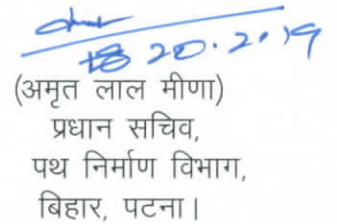 18 20.2.19
(अमृत लाल मीणा)
प्रधान सचिव,
पथ निर्माण विभाग,
बिहार, पटना।